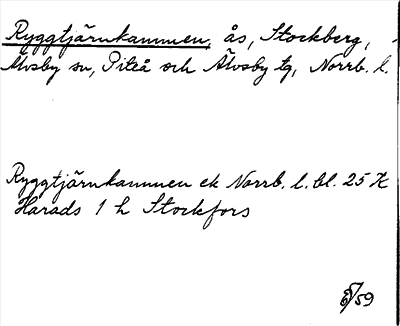 Ryggtjärnkammen, ås, Stockberg,
Älvsby sn, Piteå och Älvsby tg, Norrb. l.
Ryggtjärnkammen ek Norrb. l. bl. 25 K
Harads 1 h Stockfors
/59